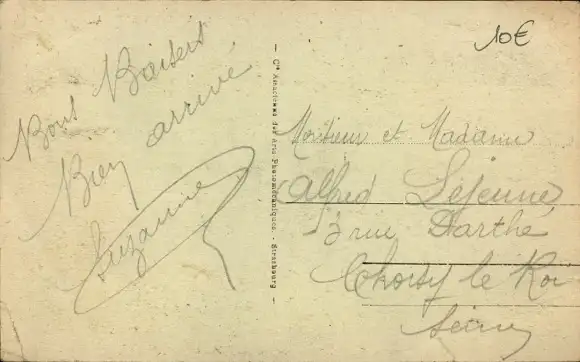 Bons Baisers
Bien arrivé
Suzanne
— Cie Alsacienne des Arts Photomécaniques. - Strasbourg —
10€
Monsieur et Madame
Alfred Lejeune
3 rue Darthé
Choisy le Roi
Seine